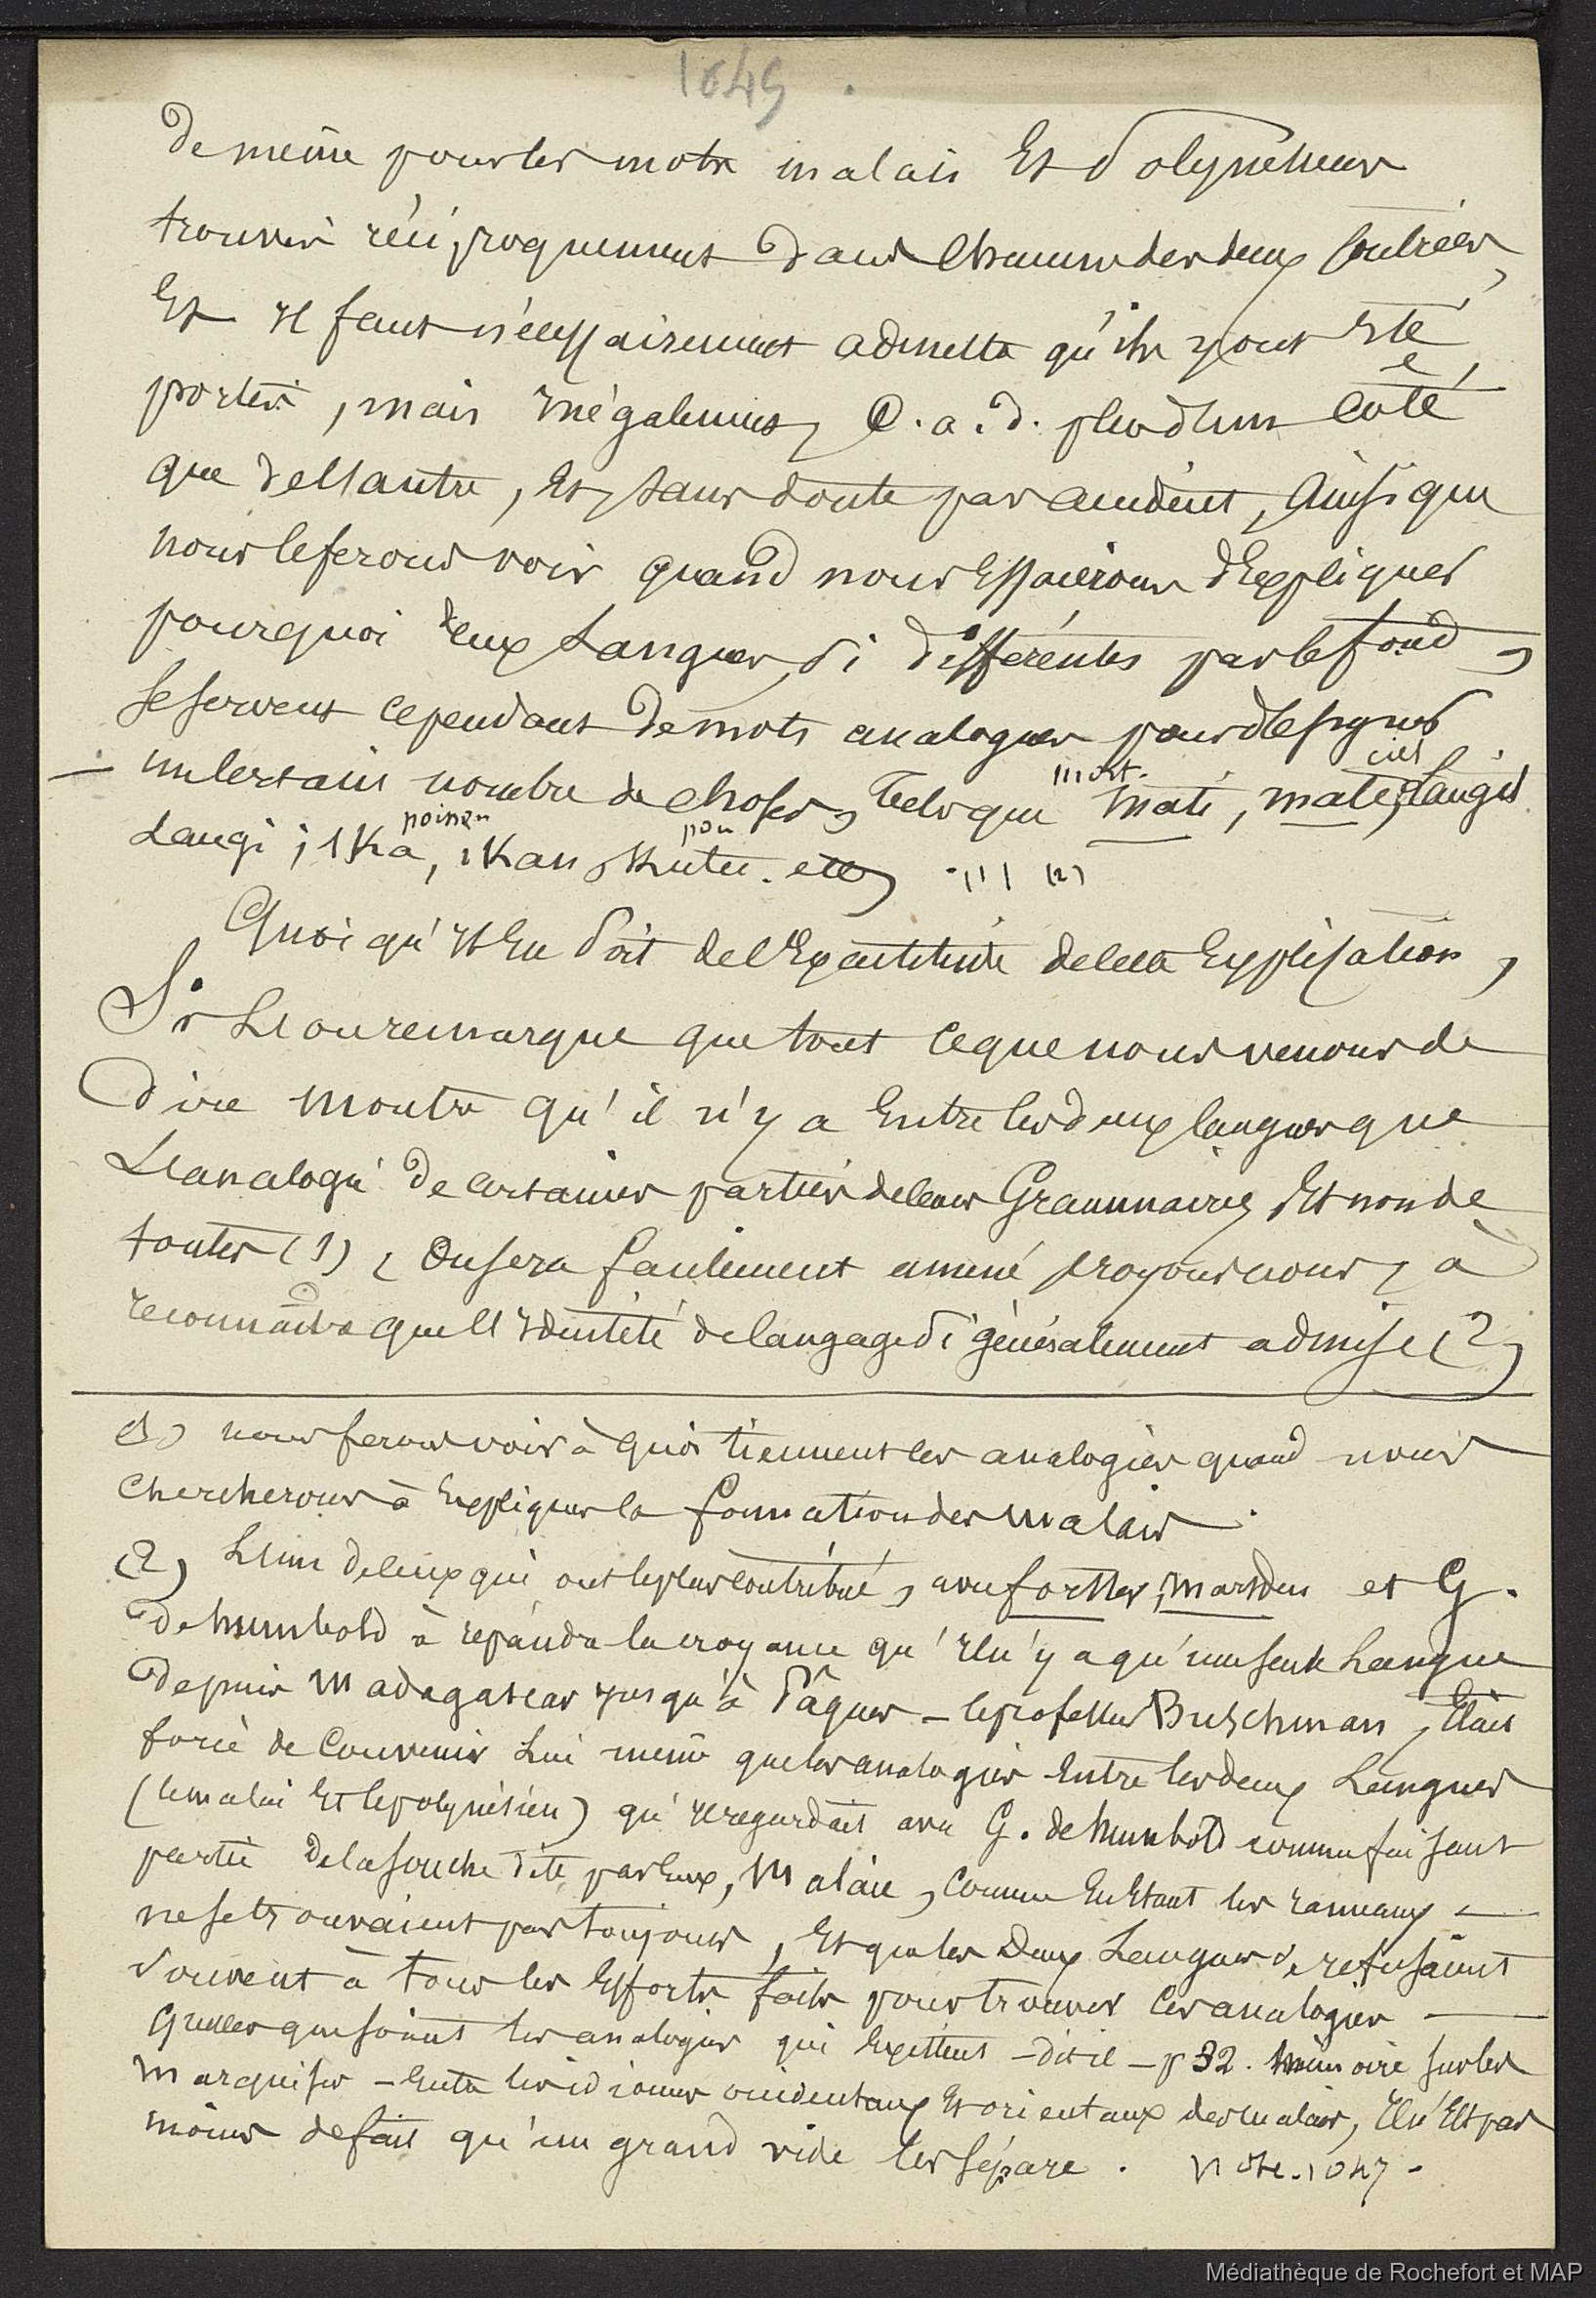 1049.
De même pour les mots malais Et Polynésiens
trouvés réciproquement dans chacune des deux contrées,
Et Il faut nécessairement admettre qu'ils y ont Eté
portés, mais Inégalement, C.a.d. plus d'un côté
que de l'autre, Et, sans doute par accident, Ainsi que
nous le ferons voir quand nous Essaierons d'Expliquer
pourquoi deux Langues, si différentes par le fond,
se servent cependant de mots analogues pour désigner
mort. ciel
— un certain nombre de choses, Tels que Mate, mate, Langit
poisson pou
Langi; Ika, ikan, Kutu. etc, (1) (2)
Quoi qu'Il En soit de l'Exactitude de cette Explication,
Si L'on remarque que tout ce que nous venons de
Dire montre qu'il n'y a Entre les deux langues que
L'analogie de certaines parties de leur Grammaire, Et non de
toutes (1), On sera facilement amené, croyons nous, à
reconnaître que l'Identité de langage si généralement admise (2)
(1) nous ferons voir à quoi tiennent les analogies quand nous
Chercherons à Expliquer la formation des malais.
(2) L'un de ceux qui ont le plus contribué, avec forster, Marsden et G.
de humbold à répandre la croyance qu'Il n'y a qu'une seule Langue
Depuis Madagascar jusqu'à Pâques — le professeur Buschman, Etait
forcé de Convenir Lui même que les analogies Entre les deux Langues
(le malai Et le polynésien) qu'Il regardait avec G. de humbold comme faisant
partie de la souche dite, par Eux, Malaie, comme En Etant les rameaux —
ne se trouvaient pas toujours, Et que les Deux Langues se refusaient
Souvent à tous les Efforts faits pour trouver ces analogies —
Quelles que soient les analogies qui Existent — dit-il — p 32. Mémoire sur les
Marquises — Entre les idiomes occidentaux Et orientaux des malais, Il n'Est pas
moins de fait qu'un grand vide les sépare. Note. 1047 -
Médiathèque de Rochefort et MAP